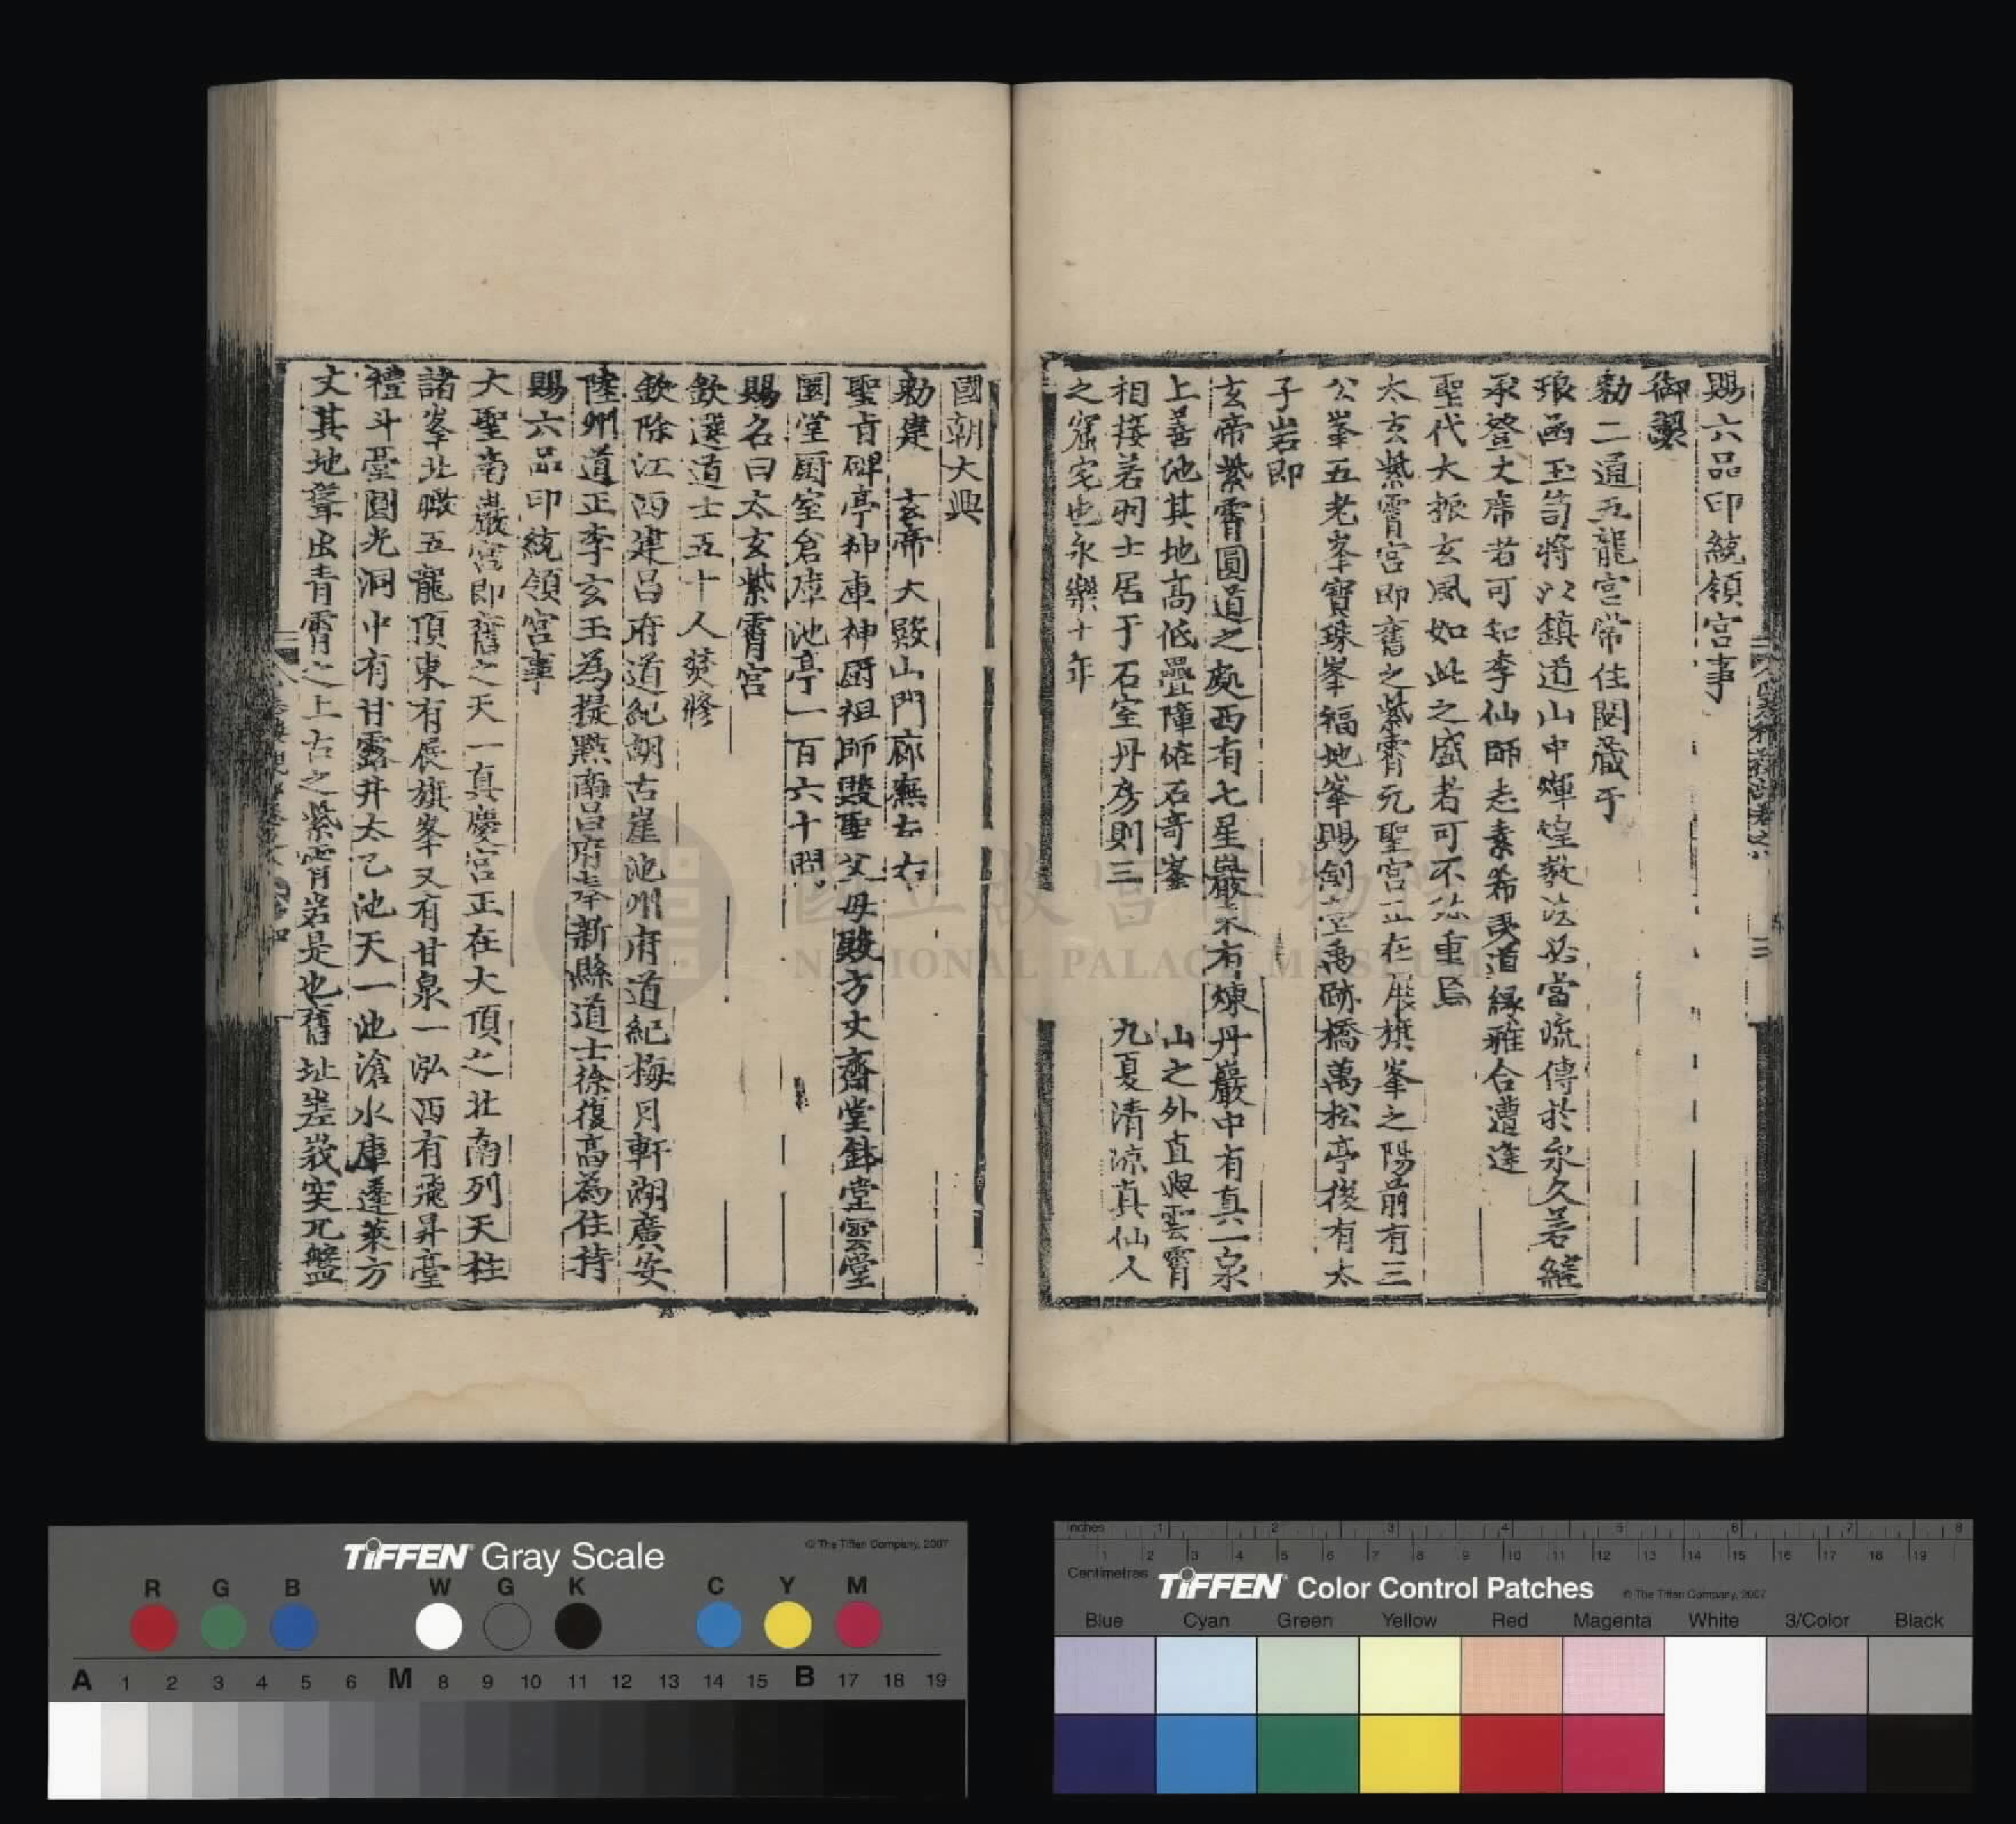 賜六品印統領宮事
御製
勑二通五龍宮常住閣藏于
琅函玉笥將以鎮道山中煇煌教法必當流傳於永久若
承登丈席者可知李仙師志素希夷道緣雅合遭逢
聖代大振玄風如此之盛者可不
重焉
太玄紫霄宮即舊之紫霄元聖宮正在展旗峯之陽前有三
公峯五老峯寶珠峯福地峯賜劍臺禹跡橋萬松亭後有太
子岩即
玄帝紫霄圓道之處西有七星巖
右煉丹巖中有真一泉
上善池其地高低疊障
石奇峯
山之外直與雲霄
相接若羽士居于石室丹房則三
九夏清涼真仙人
之窟宅也永樂十年
國朝大興
勑建 玄帝大殿山門廊廡左右
聖旨碑亭神庫神廚祖師殿聖父母殿方丈齋堂鉢堂雲堂
圜堂廚室倉庫池亭一百六十間
賜名曰太玄紫霄宮
欽選道士五十人焚修
欽除江西建昌府道紀胡古崖池州府道紀梅月軒湖廣安
陸州道正李玄玉為提點南昌府奉新縣道士徐復高為住持
賜六品印統領宮事
大聖南巖宮即舊之天一真慶宮正在大頂之北南列天柱
諸峯北瞰五龍頂東有展旗峯又有甘泉一泓西有飛昇臺
禮斗臺圓光洞中有甘露井太乙池天一池滄水庫蓬萊方
丈其地聳出青霄之上古之紫霄岩是也舊址差峩突兀盤
國立故宮博物院
NATIONAL PALACE MUSEUM
TIFFEN Gray Scale
© The Tiffen Company, 2007
R G B W G K C Y M
A 1 2 3 4 5 6 M 8 9 10 11 12 13 14 15 B 17 18 19
Inches 1 2 3 4 5 6 7 8
1 2 3 4 5 6 7 8 9 10 11 12 13 14 15 16 17 18 19
Centimetres
TIFFEN Color Control Patches
© The Tiffen Company, 2007
Blue Cyan Green Yellow Red Magenta White 3/Color Black